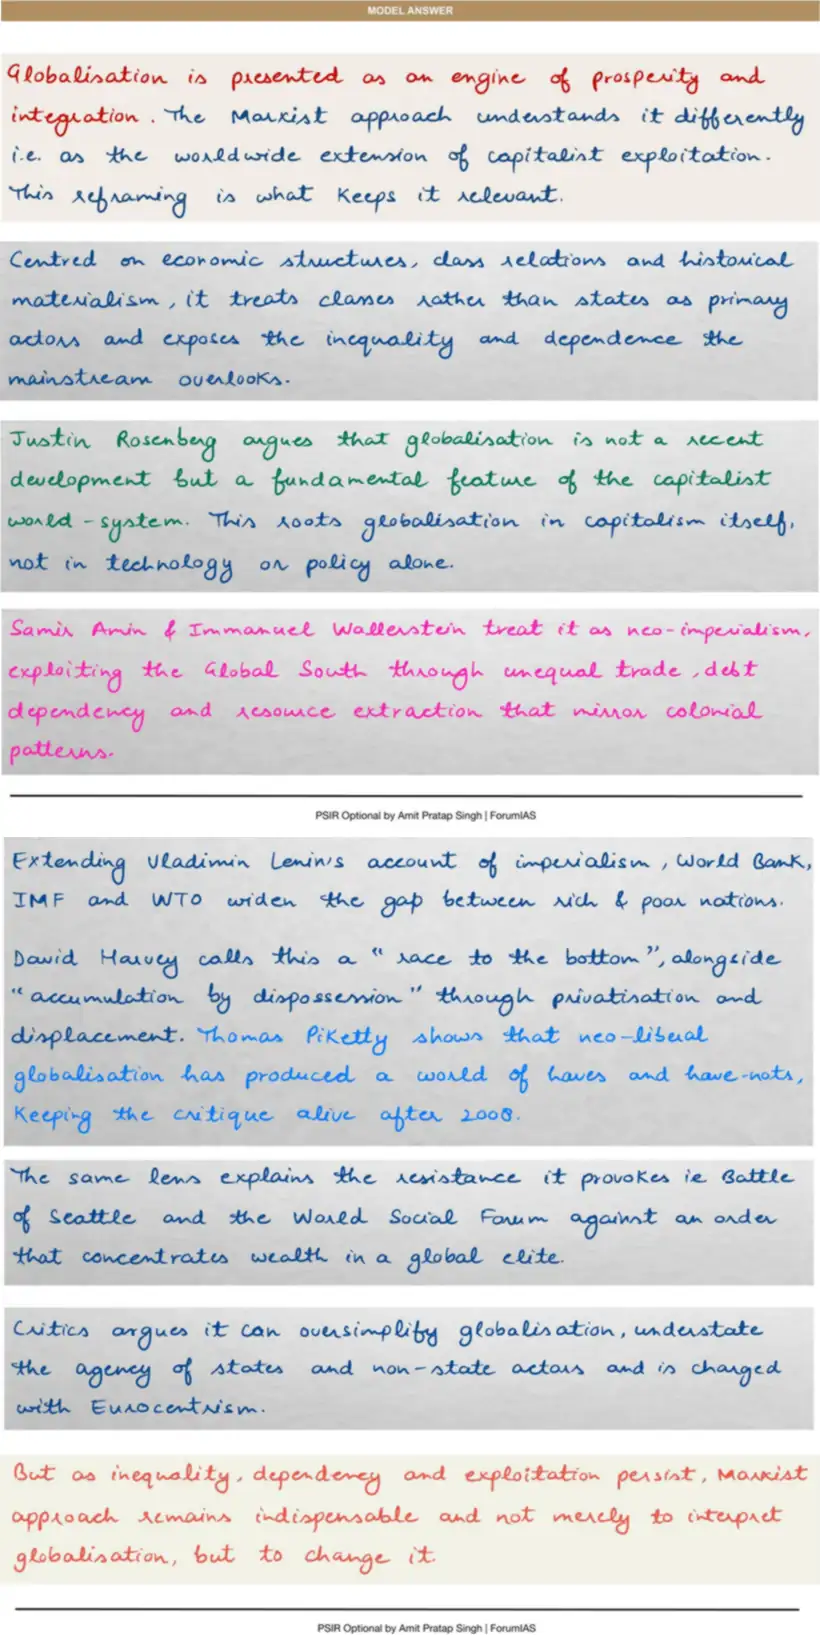 MODEL ANSWER
Globalisation is presented as an engine of prosperity and
integration. The Marxist approach understands it differently
i.e. as the worldwide extension of capitalist exploitation.
This reframing is what keeps it relevant.
Centred on economic structures, class relations and historical
materialism, it treats classes rather than states as primary
actors and exposes the inequality and dependence the
mainstream overlooks.
Justin Rosenberg argues that globalisation is not a recent
development but a fundamental feature of the capitalist
world-system. This roots globalisation in capitalism itself,
not in technology or policy alone.
Samir Amin & Immanuel Wallerstein treat it as neo-imperialism,
exploiting the Global South through unequal trade, debt
dependency and resource extraction that mirror colonial
patterns.
PSIR Optional by Amit Pratap Singh | ForumIAS
Extending Vladimin Lenin's account of imperialism, World Bank,
IMF and WTO widen the gap between rich & poor nations.
David Harvey calls this a "race to the bottom", alongside
"accumulation by dispossession" through privatisation and
displacement. Thomas Piketty shows that neo-liberal
globalisation has produced a world of haves and have-nots,
keeping the critique alive after 2008.
The same lens explains the resistance it provokes ie Battle
of Seattle and the World Social Forum against an order
that concentrates wealth in a global elite.
Critics argues it can oversimplify globalisation, understate
the agency of states and non-state actors and is charged
with Eurocentrism.
But as inequality, dependency and exploitation persist, Marxist
approach remains indispensable and not merely to interpret
globalisation, but to change it.
PSIR Optional by Amit Pratap Singh | ForumIAS